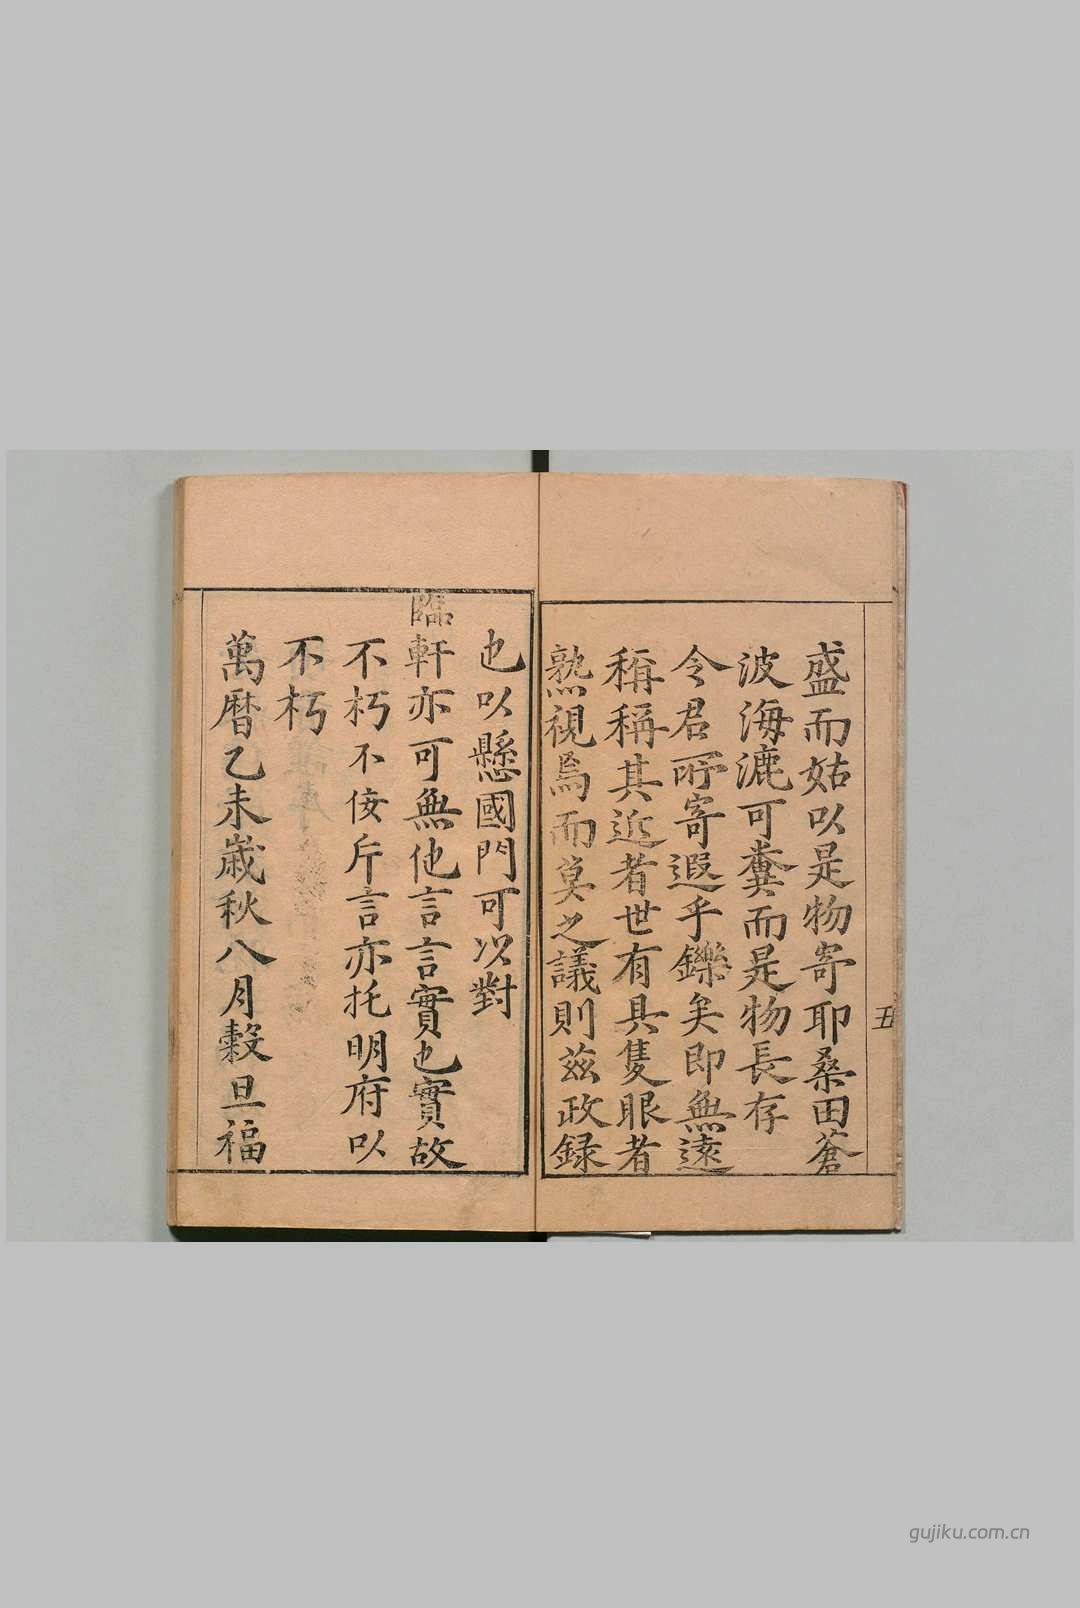 丑
盛而姑以是物寄耶桑田蒼
波海漉可糞而是物長存
令君所寄遐乎鑠矣即無遠
稱稱其近者世有具隻眼者
熟視焉而莫之議則茲政録
也以懸國門可以對
臨軒亦可無他言言實也實故
不朽不佞斤言亦托明府以
不朽
萬曆乙未歲秋八月穀旦福
gujiku.com.cn